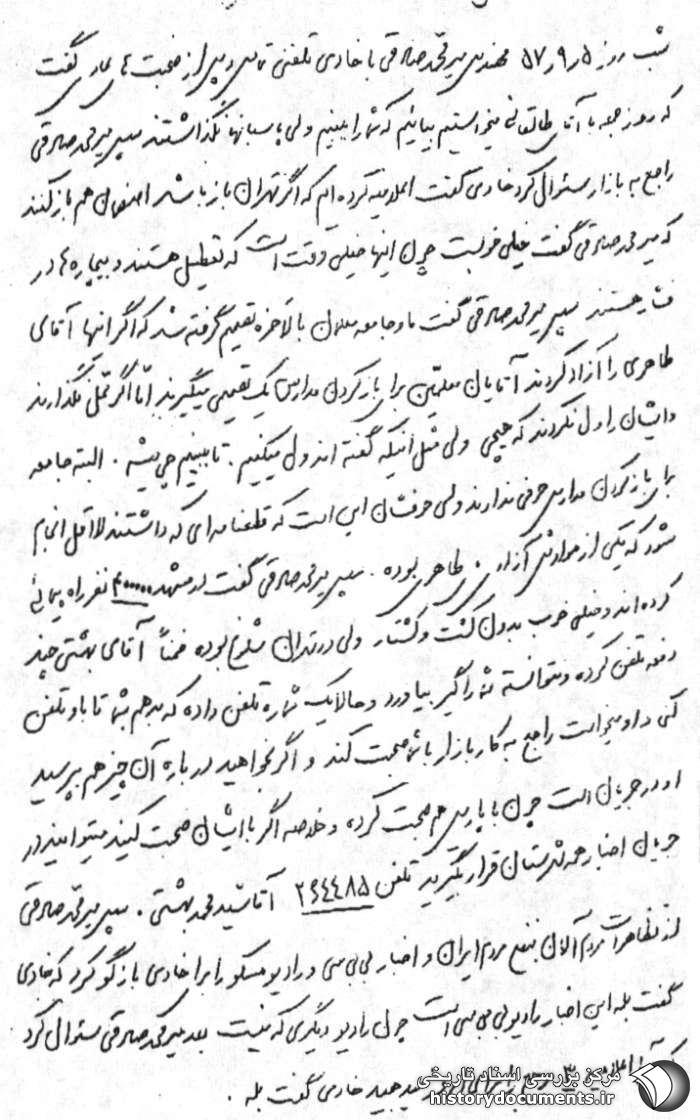 شب روز ۵ر۹ر۵۷ مهندس میرمحمدصادقی با خادمی تلفنی تماس و پس از صحبت های عادی گفت
که روز جمعه با آقای طالقانی میخواستیم بیائیم که شما را ببینیم ولی پاسبانها نگذاشتند سپس میرمحمدصادقی
راجع به بازار سئوال کرد خادمی گفت اعلامیه کرده ایم که اگر تهران باز باشد اصفهان هم باز کنند
که میرمحمدصادقی گفت خیلی خوبست چون اینها خیلی وقت است که تعطیل هستند و بیچاره ها در
هستند سپس میرمحمدصادقی گفت ما و جامعه معلمان بالاخره تصمیم گرفته شد که اگر اینها آقای
طاهری را آزاد کردند آقایان معلمین برای باز کردن مدارس یک تصمیمی میگیرند اما اگر گذارند
و ایشان را ول نکردند که هیچی ولی مثل اینکه گفته اند ول میکنیم . تا ببینیم چی میشه . البته جامعه
برای باز کردن مدارس حرفی ندارند ولی حرفشان این است که قطعنامه ای که داشتند لااقل انجام
شود که یکی از موادش آزادی طاهری بوده . سپس میرمحمدصادقی گفت در مشهد نفر راه پیمائی
کرده اند و خیلی خوب بدون کشت و کشتار ولی در تهران شلوغ بوده ضمناً آقای بهشتی چند
دفعه تلفن کرده و نتوانسته شما را گیر بیاورد و حالا یک شماره تلفن داده که بدهم بشما تا باو تلفن
کنی و او میخواست راجع به کار بازار با شما صحبت کند و اگر بخواهید درباره آن چیز هم بپرسید
او در جریان است چون با پاریس هم صحبت کرده و خلاصه اگر با ایشان صحبت کنید میتوانید در
جریان اخبار قرار بگیرید تلفن ۲۶۴۴۸۵ آقا سید محمد بهشتی . سپس میرمحمدصادقی
از تظاهرات مردم آلمان بنفع مردم ایران و اخبار بی بی سی و رادیو مسکو را برای خادمی بازگو کرد که خادمی
گفت بله این اخبار رادیو بی بی سی است چون رادیو دیگری که نیست بعد میرمحمدصادقی سئوال کرد
که اعلامیه خادمی گفت بله .
مرکز بررسی اسناد تاریخی
historydocuments.ir